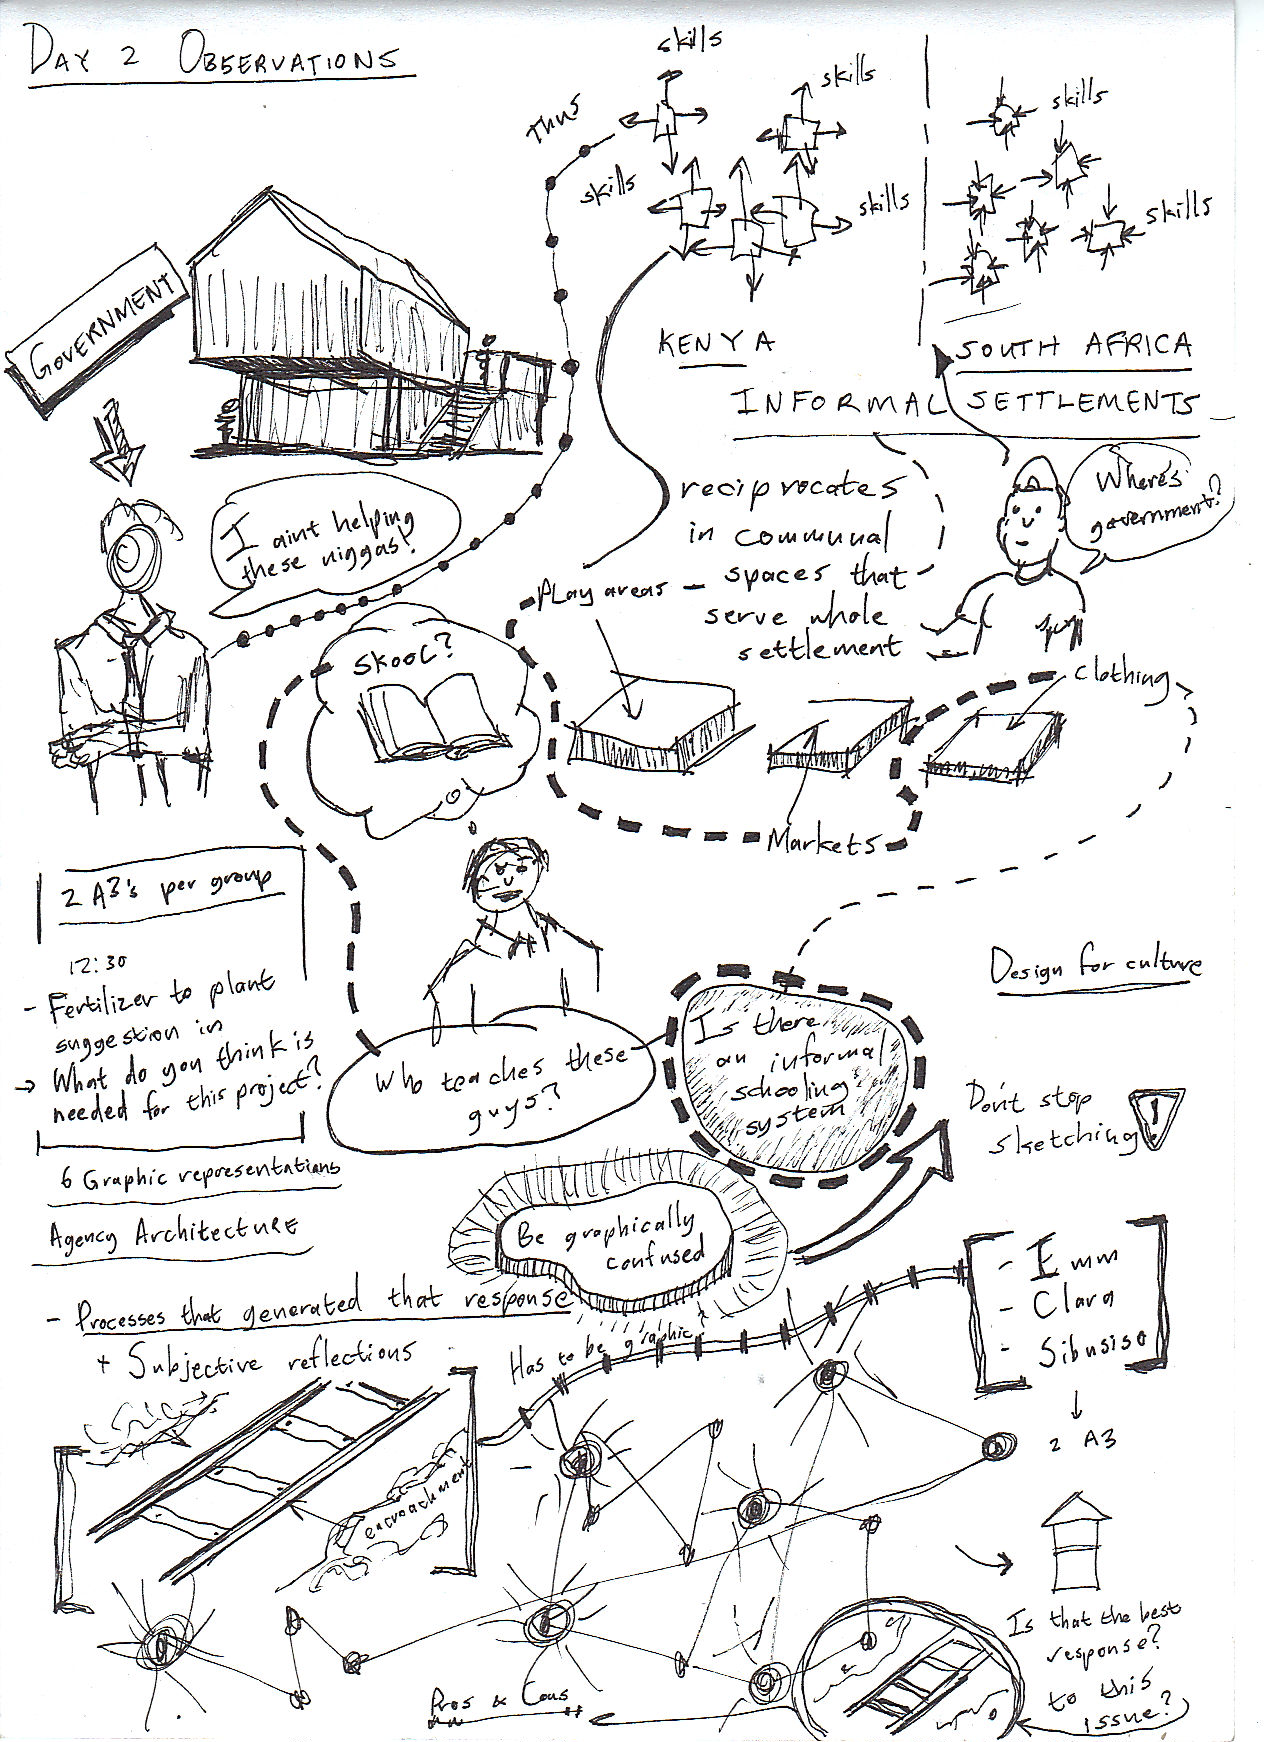 DAY 2 OBSERVATIONS
skills
skills
Thus
skills
skills
skills
skills
GOVERNMENT
KENYA
SOUTH AFRICA
INFORMAL SETTLEMENTS
I aint helping
these niggas!
Where's
government?
reciprocates
in communal
spaces that
serve whole
settlement
Play areas
SKOOL?
Clothing
Markets
2 A3's per group
12:30
- Fertilizer to plant
suggestion in
→ What do you think is
needed for this project?
Who teaches these
guys?
Is there
an informal
schooling
system
Design for culture
Don't stop
sketching
!
6 Graphic representations
Agency Architecture
Be graphically
confused
- Processes that generated that response
+ Subjective reflections
Has to be graphic
- Emm
- Clara
- Sibusiso
2 A3
encroachment
Is that the best
response?
to this
issue?
Pros & Cons